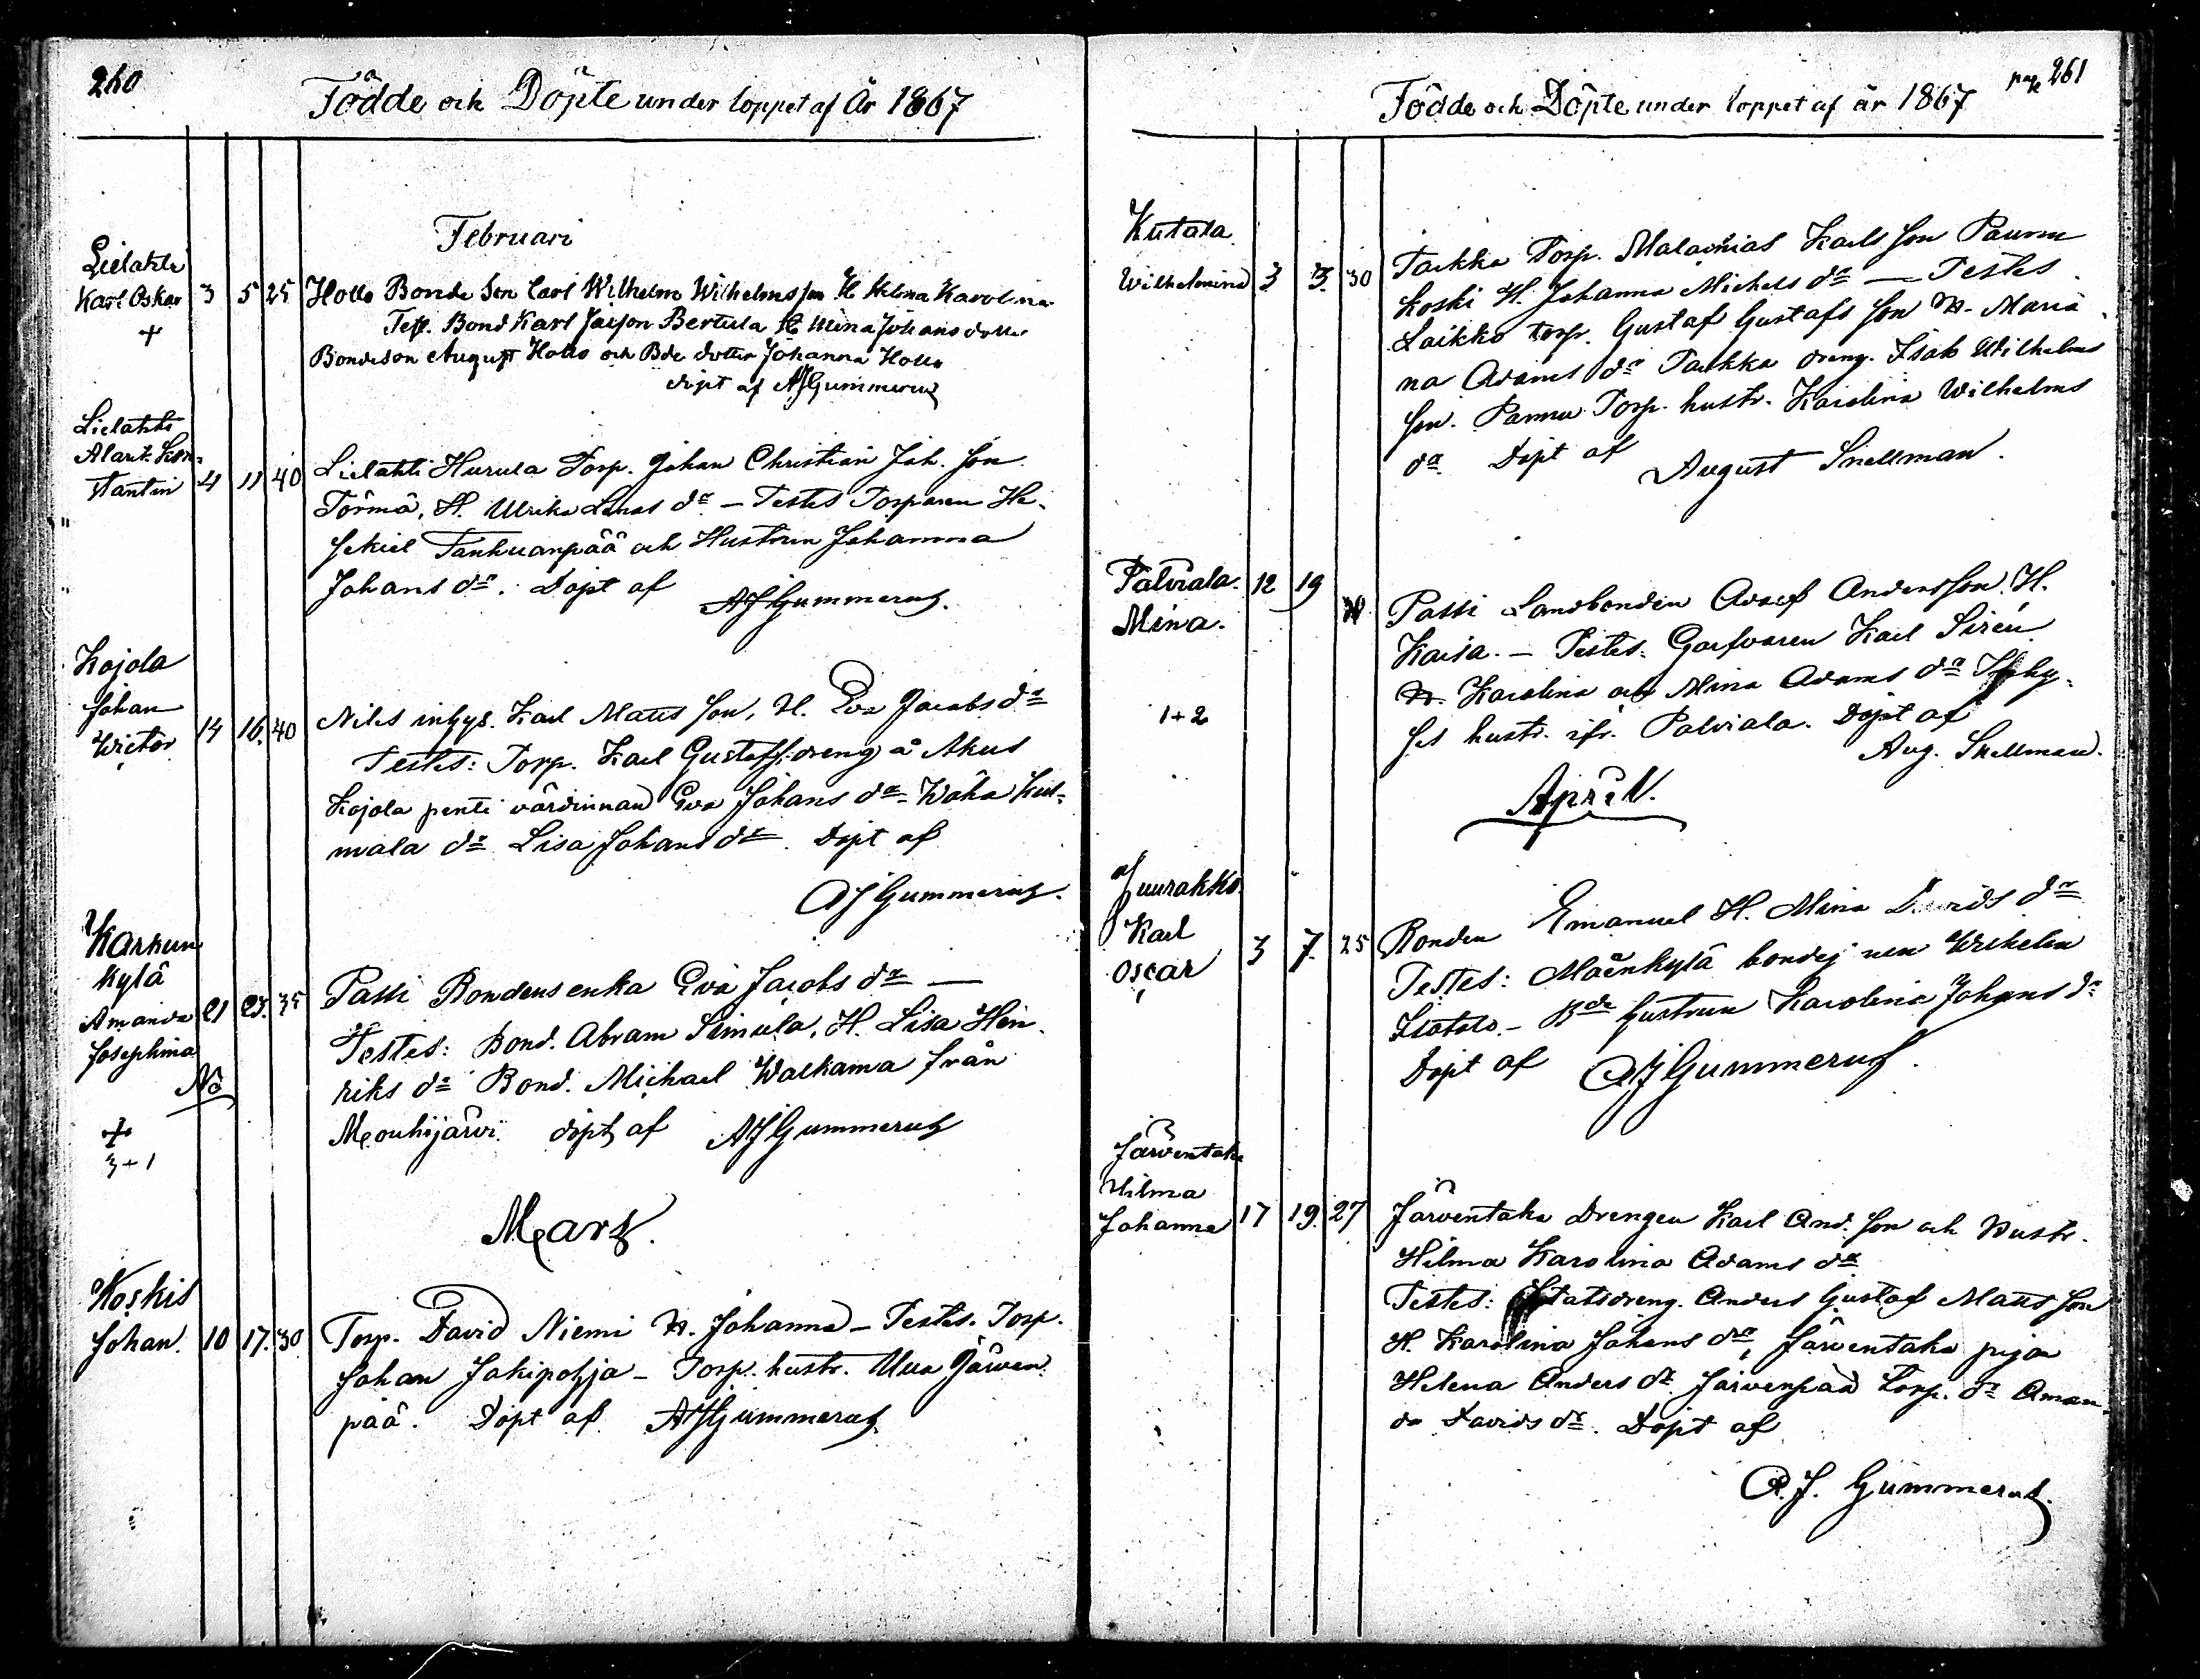 260
Födde och Döpte under loppet af År 1867
Februari
Lielahti
Karl Oskar 3 5 25
+
Hollo Bonde Son Carl Wilhelm Wilhelmsson H Hilma Karolina
Test. Bond Karl Bertula H Mina Johansdotter
Bondeson August Hollo och Bde dotter Johanna Hollo
döpt af AJGummerus
Lielahti
Alarik Kon-
stantin 4 11 40
Lielahti Hurula Torp. Johan Christian Joh. Son
Törmä, H. Ulrika dr – Testes Torparen He-
sekiel Tanhuanpää och Hustrun Johanna
Johans dr. Döpt af
AJGummerus.
Kojola
Johan
Wictor 14 16. 40
Nils inhys. Karl Matts Son, H. Eva Jacobs dr
Testes: Torp. Karl Gustafs. dreng å Ahus
Kojola penti värdinnan Eva Johans dr Waha Kul-
mala dr Lisa Johans dr. Döpt af
AJGummerus.
Karkun
kylä
Amanda
Josephina 21 23. 35
Nö
+
3+1
Passi Bondens enka Eva Jacobs dr —
Testes: Bond. Abram Simula, H. Lisa Hen-
riks dr Bond. Michael Walkama från
Mouhijärvi. döpt af AJGummerus
Mars.
Koskis
Johan. 10 17. 30
Torp. David Niemi H. Johanna – Testes. Torp.
Johan Jokipohja – Torp. hustr. Ulla Järven
pää. Döpt af AJGummerus
pag 261
Födde och Döpte under loppet af år 1867
Kutala
Wilhelmina 3 3. 30
Taikka Torp. Malachias Karls Son Pannu
koski H. Johanna Michels dr — Testes
Laikko torp. Gustaf Gustafs Son H. Maria
na Adams dr Taikka dreng. Isak Wilhelms
Son. Pannu Torp. hustr. Karolina Wilhelms
dr Döpt af
August Snellman.
Palviala.
Mina. 12 19
1+2
Passi Landbonden Adolf Andersson. H.
Kaisa. – Testes: Garfvaren Karl Sirén
H. Karolina och Mina Adams dr Inhy-
ses hustr. ifr. Palviala. Döpt af
Aug. Snellman.
April.
Juurakko
Karl
Oscar 3 7. 25
Bonden Emanuel H. Mina Davids dr
Testes: Mäenkylä Wilhelm
Bde hustrun Karolina Johans dr
Döpt af AJGummerus.
Järventaka
Hilma
Johanna 17 19. 27
Järventaka Drengen Karl And. Son och Hustr.
Hilma Karolina Adams dr
Testes: Statsdreng. Anders Gustaf Matts Son
H. Karolina Johans dr, Järventaka pigan
Helena Anders dr Järvenpää torp. dr Aman-
da Davids dr. Döpt af
A. J. Gummerus.